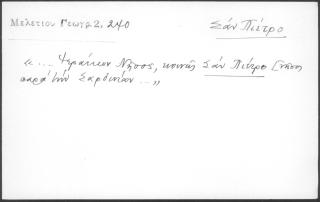 Μελετίου Γεωγρ 2, 240
Σάν Πιέτρο
«... Ἱεράκων Νῆσος, κοινῶς Σάν Πιέτρο [νῆσος
παρά τήν Σαρδινίαν ...»